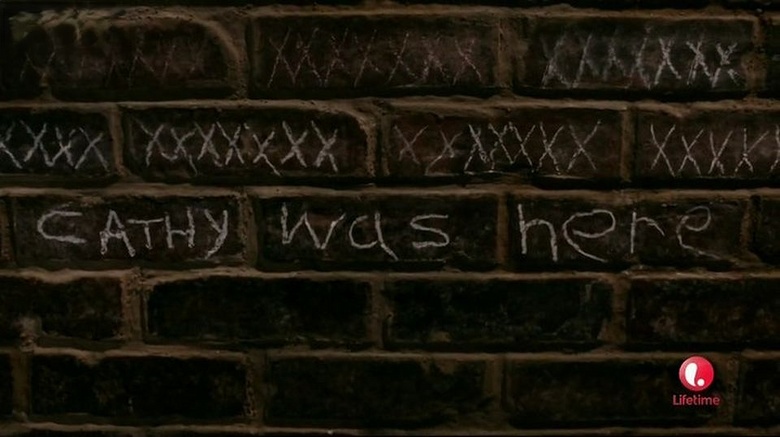 XXXXXX XXXXXXX XXXXXXX
XXXX XXXXXXX XXXXXXX XXXXX
CATHY was here
Lifetime